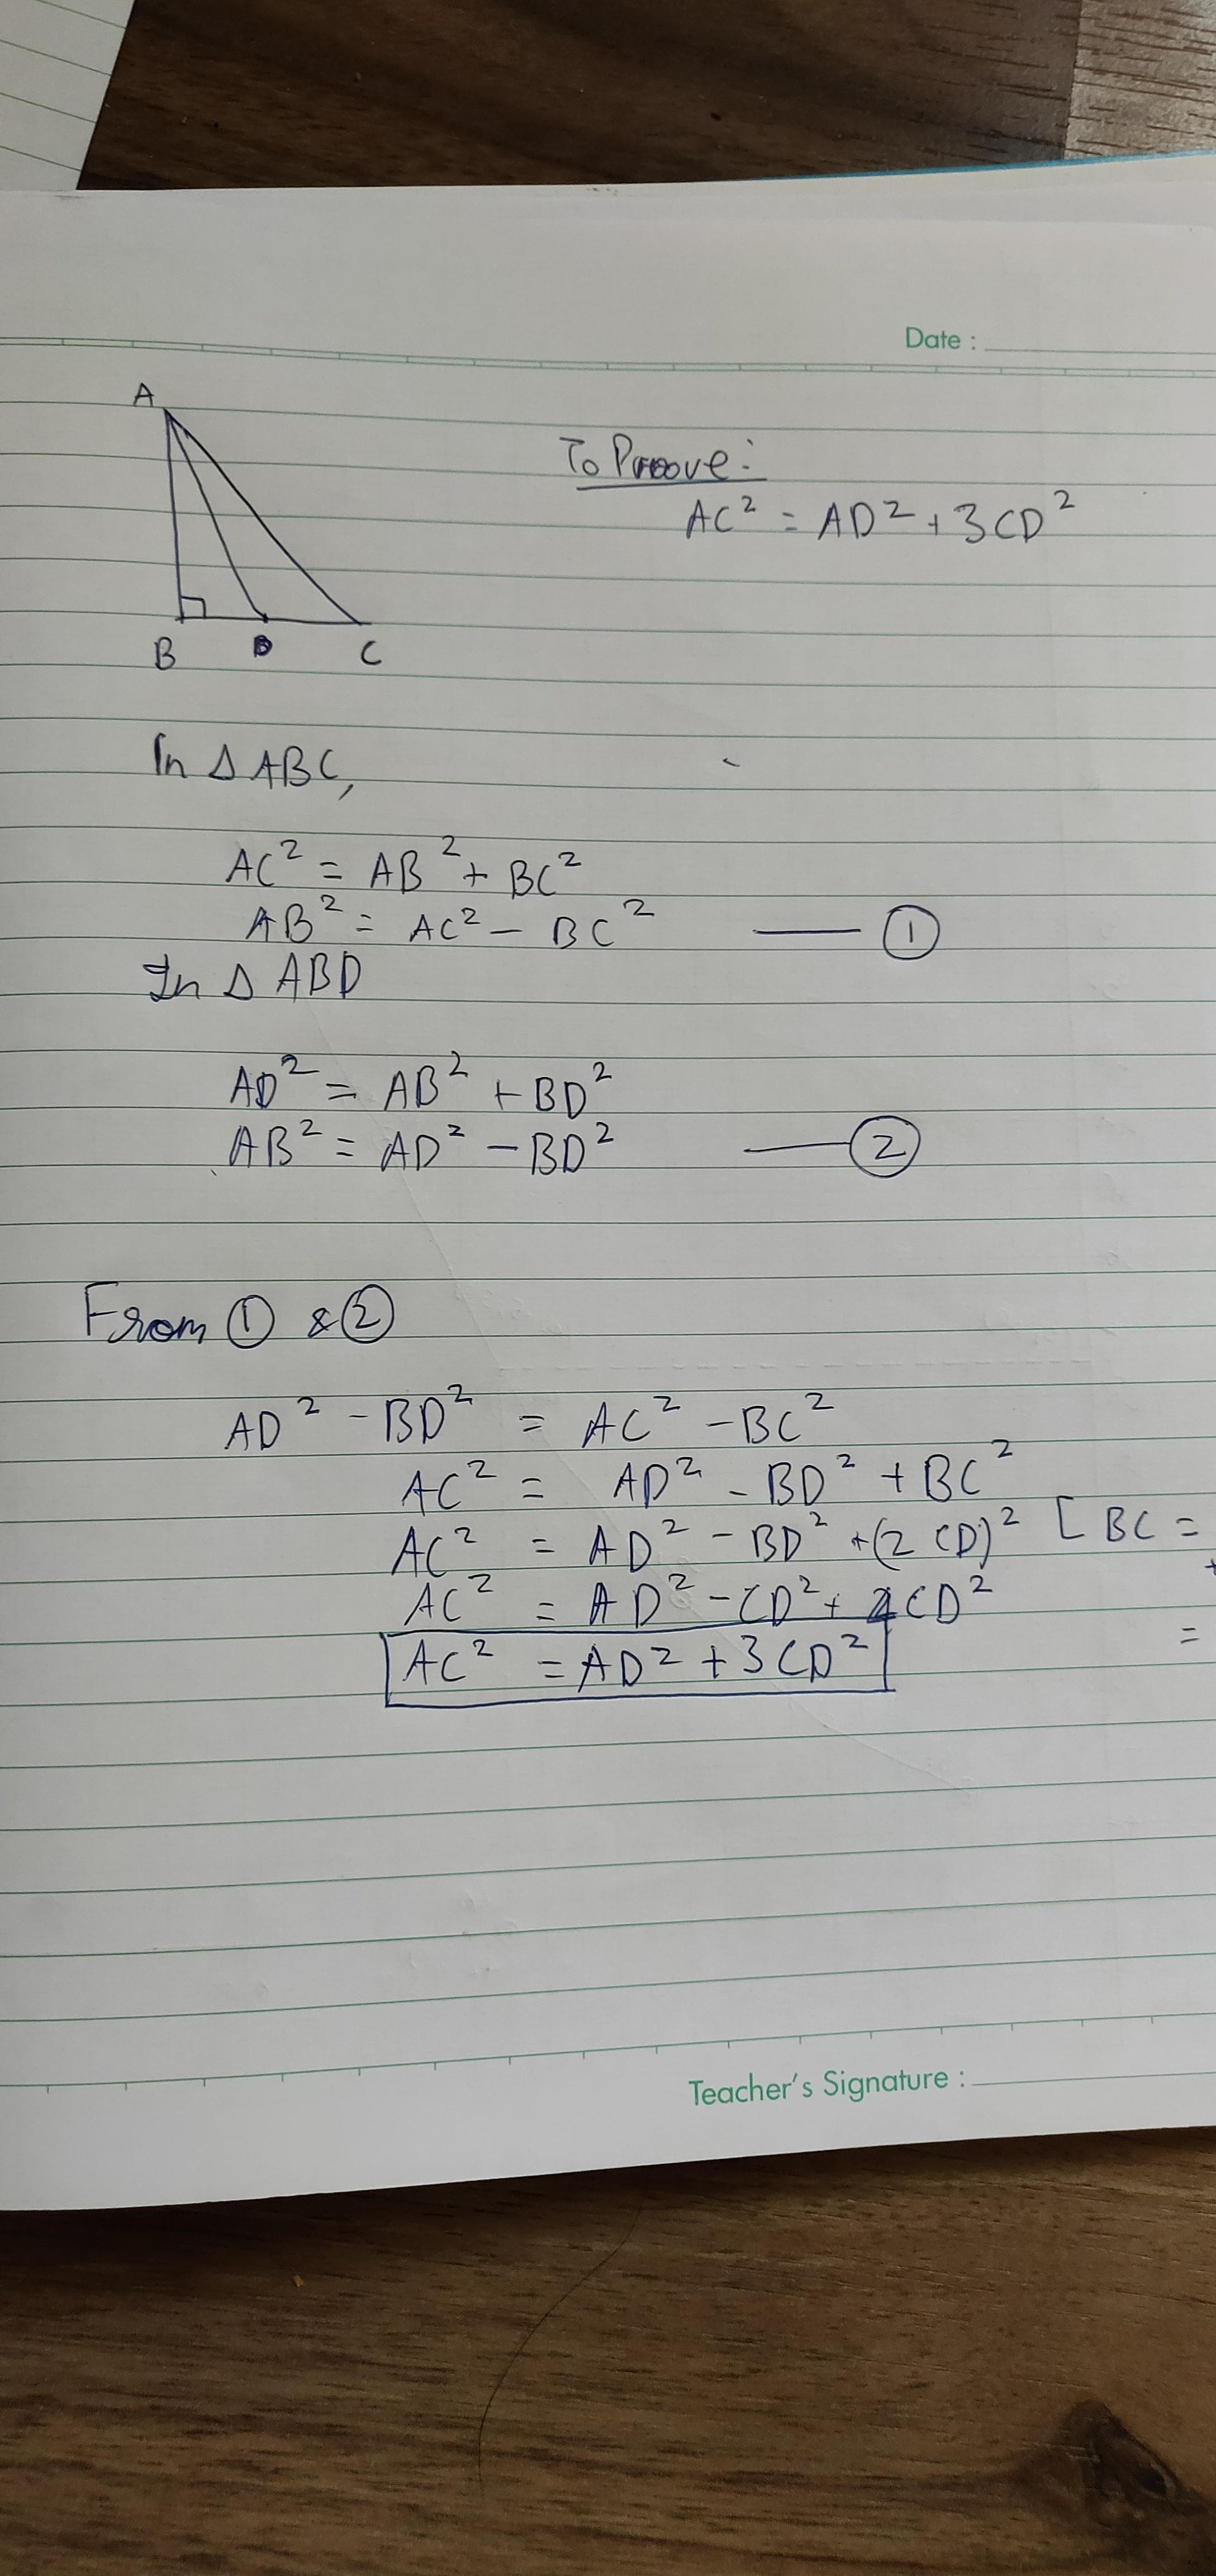 Date :
A
To Proove :
AC² = AD² + 3CD²
B D C
In Δ ABC,
AC² = AB² + BC²
AB² = AC² - BC² —— ①
In Δ ABD
AD² = AB² + BD²
AB² = AD² - BD² —— ②
From ① & ②
AD² - BD² = AC² - BC²
AC² = AD² - BD² + BC²
AC² = AD² - BD² + (2 CD)² [ BC =
AC² = AD² - CD² + 4CD²
=
AC² = AD² + 3CD²
Teacher's Signature :